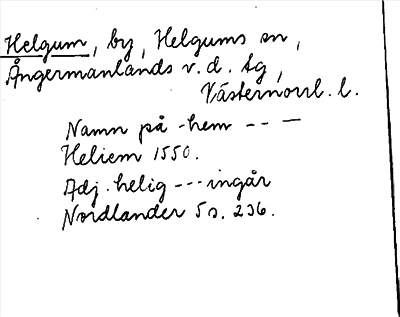 Helgum, by, Helgums sn,
Ångermanlands v. d. tg,
Västernorrl. l.
Namn på -hem -- —
Heliem 1550.
Adj. helig --- ingår
Nordlander 5 s. 236.